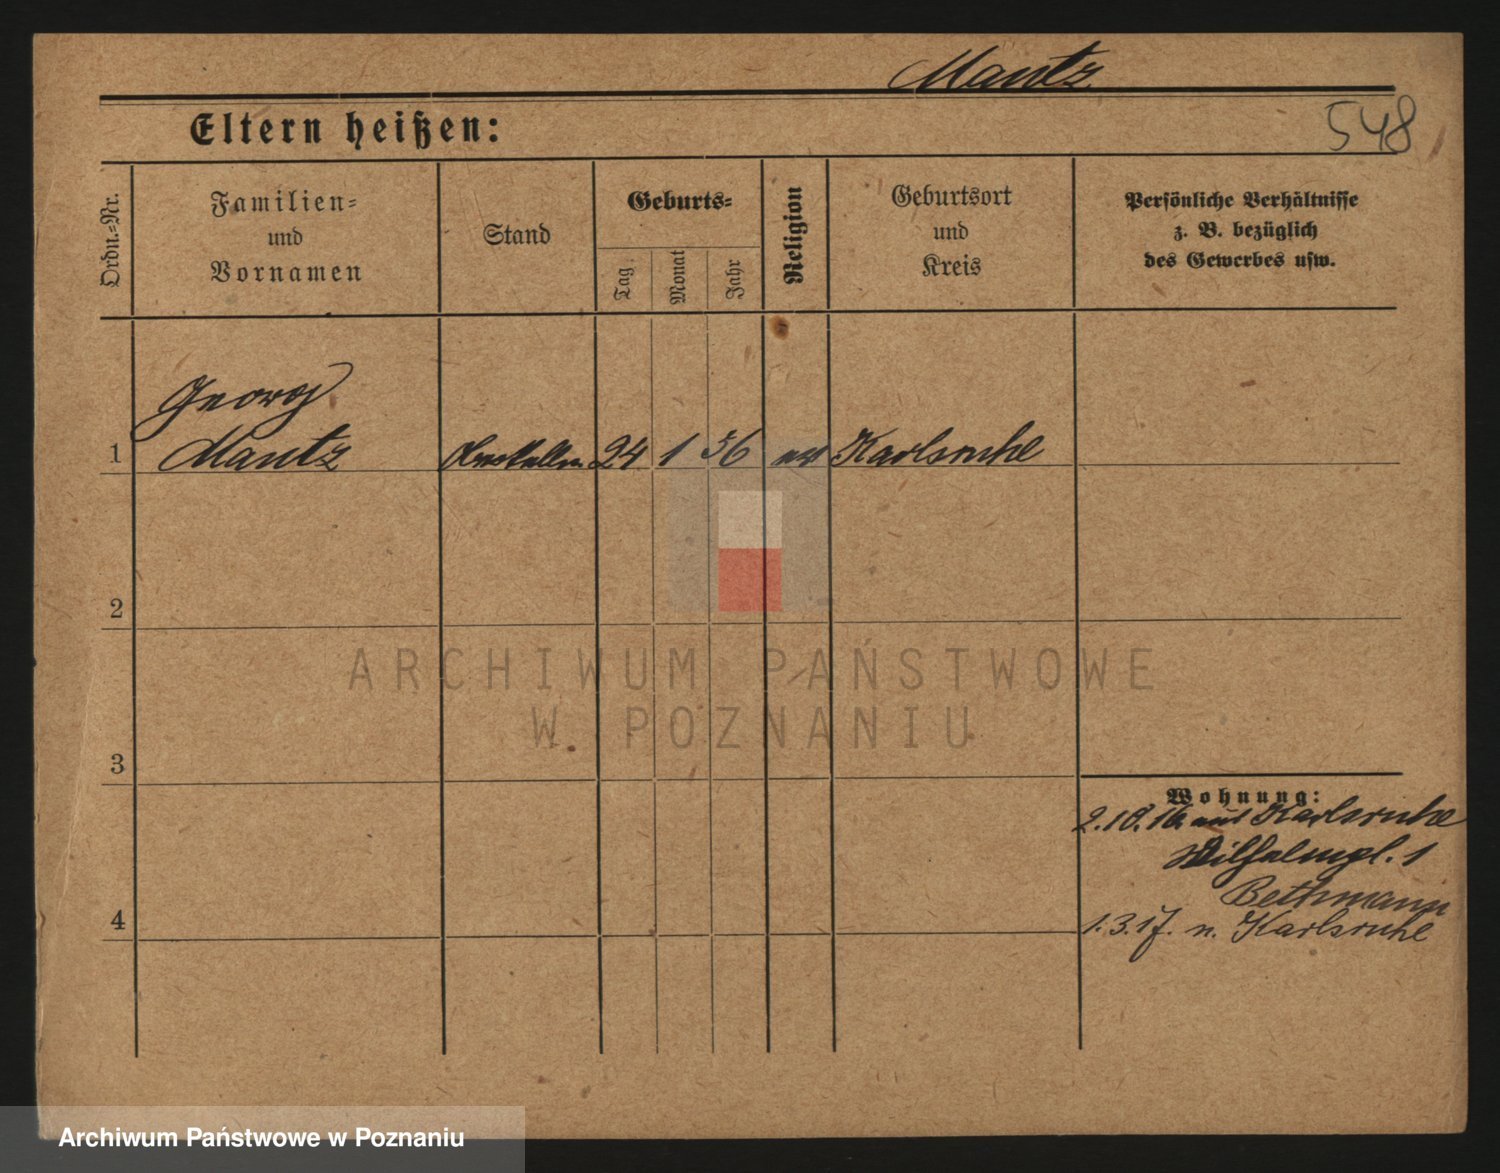 Mantz
548
Eltern heißen:
Ordn.=Nr.
Familien=
und
Vornamen
Stand
Geburts=
Tag
Monat
Jahr
Religion
Geburtsort
und
Kreis
Persönliche Verhältnisse
z. B. bezüglich
des Gewerbes usw.
Georg
1 Mantz 24 1 56 Karlsruhe
2
3
4
Wohnung:
2.10.16 aus Karlsruhe
Wilhelmpl. 1
Bethmann
1.3.17. n. Karlsruhe
ARCHIWUM PAŃSTWOWE
W POZNANIU
Archiwum Państwowe w Poznaniu